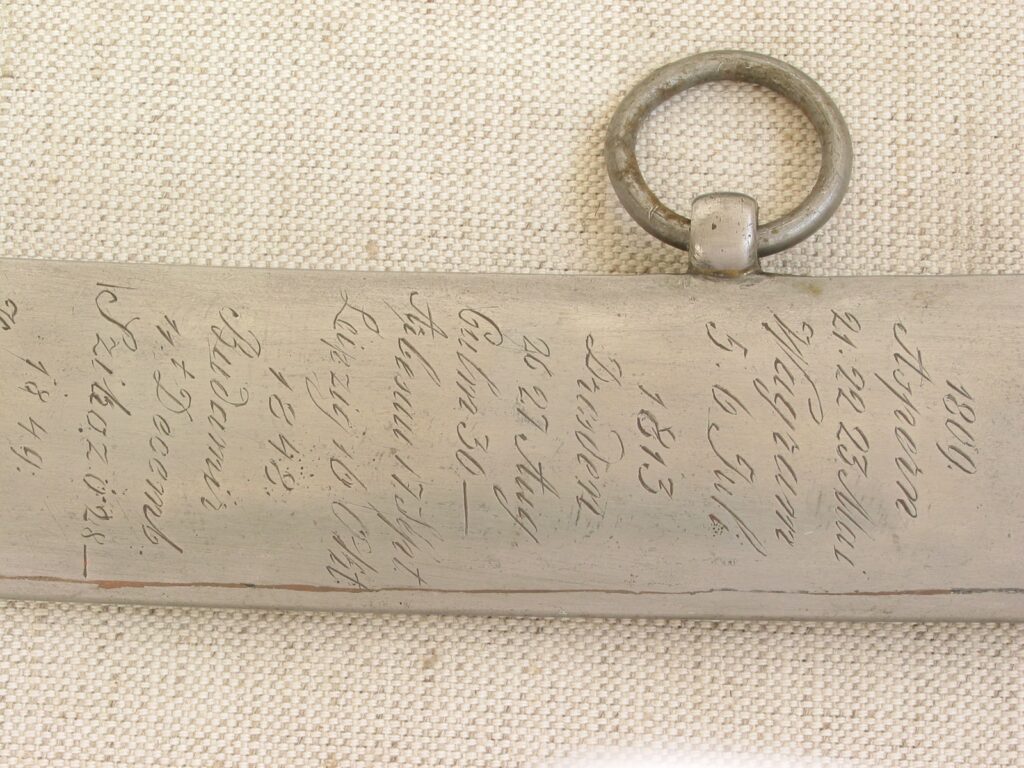 1809.
Aspern
21. 22 23 Mai
Wagram
5. 6 Juli
1813
Dresden
26 27 Aug
Culm 30 —
Arbesau 17 Spt
Leipzig 16 Okt
1848.
Budamir
11.t Decemb.
Szikszó 28 —
1849.